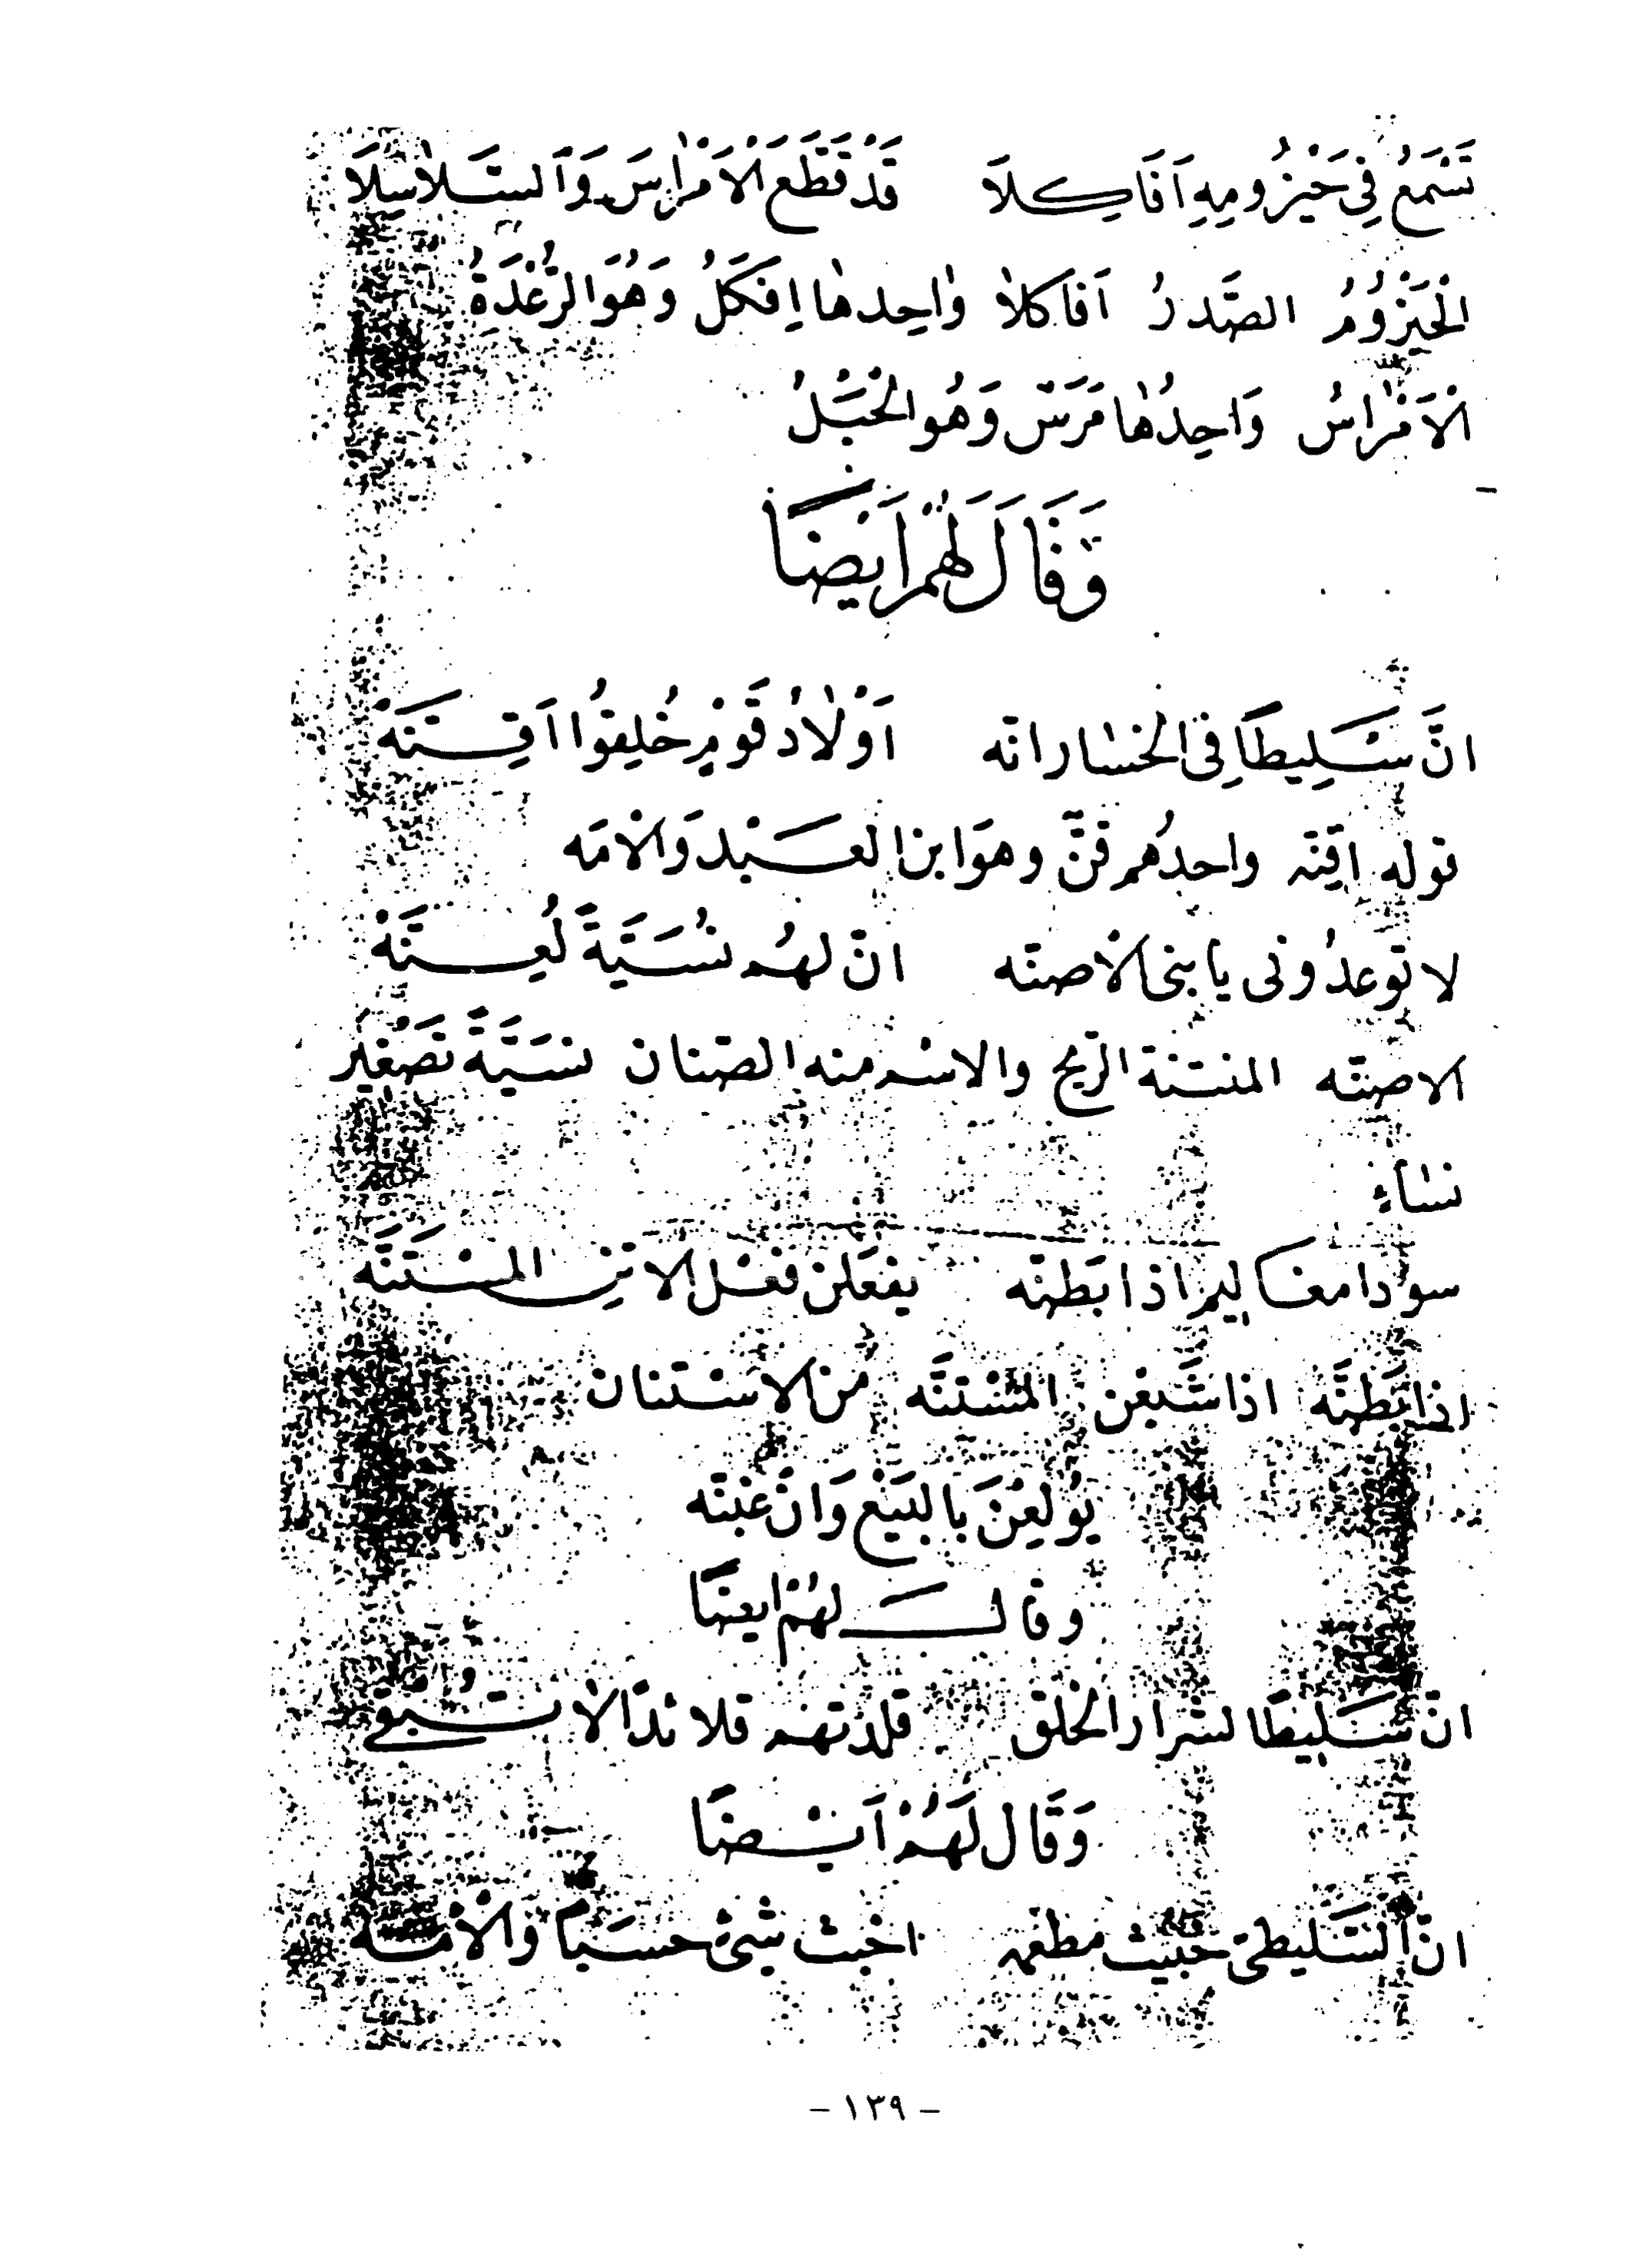 تَسْمَعُ فِي حَيْزُومِهِ اَفَاكِلَا قَدْ قَطَّعَ الْاَمْرَاسَ وَالسَّلَاسِلَا
الْحَيْزُومُ الصَّدرُ اَفاكلا وَاحِدها اِفكَلُ وَهُوَ الرِّعْدَةُ
الْاَمْرَاسُ وَاحِدُهَا مَرَسٌ وَهُوَ الْحَبْلُ
وَقَالَ لَهُمْ اَيْضًا
انَّ سَلِيطًا فِى الخسَارانّه اَوْلَادُ قَوْمٍ خُلِقُوا اَقِنَّهْ
قوله اقِنّه واحدُهم قنَّ وهوَ ابن العَبْد وَالامَه
لا توعدُونى يا بنى الاصنّه انّ لهُم نُسَيَّةً لُعِنَّهْ
الاصنّه المنتنة الريح والاسْم منه الصّنان نسَيَّةً تَصْغُير
نسَاءٍ
سودا مغاليم اذا بَطنّه يفعَلن فعْل الاتن المسْتَنَّه
اذا بَطنَّه اذا شَبعْن المسْتنَّه مْن الاسْتنان
يُولَعْنَ بَالبَيْع وَانْ غُبنّه
وقال لهُمْ ايضًا
انّ سَليطًا لشرار الخلق قلدّتهم قلائدًا لا تُسْبَق
وَقَال لَهُمْ اَيْضًا
انّ السَّليطىّ خبيث مطعَمه اخبث شىْ حسَبًا وَالْاَمَه
- ١٣٩ -